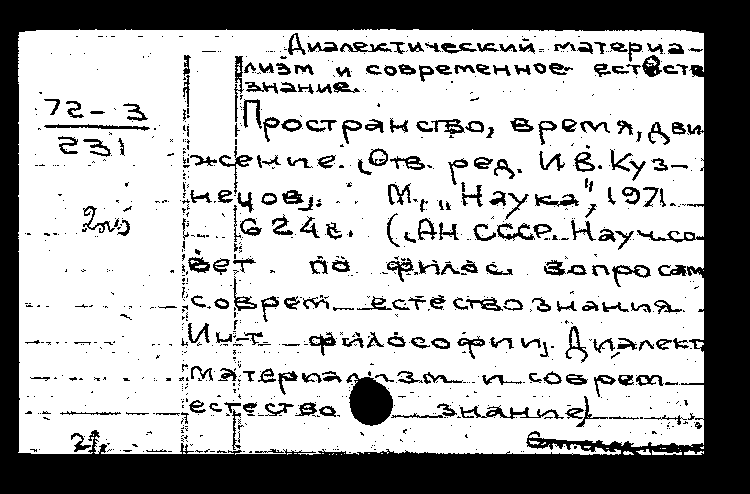 Диалектический материа-
лизм и современное естеств
знание.
72-3
231
Пространство, время, дви
жение. [Отв. ред. И.В. Куз-
нецов]. М., "Наука", 1971.
624 с. ([АН СССР. Науч. со-
вет по филос. вопросам
соврем. естествознания
Ин-т философии]. Диалект.
материализм и соврем.
естество знание)